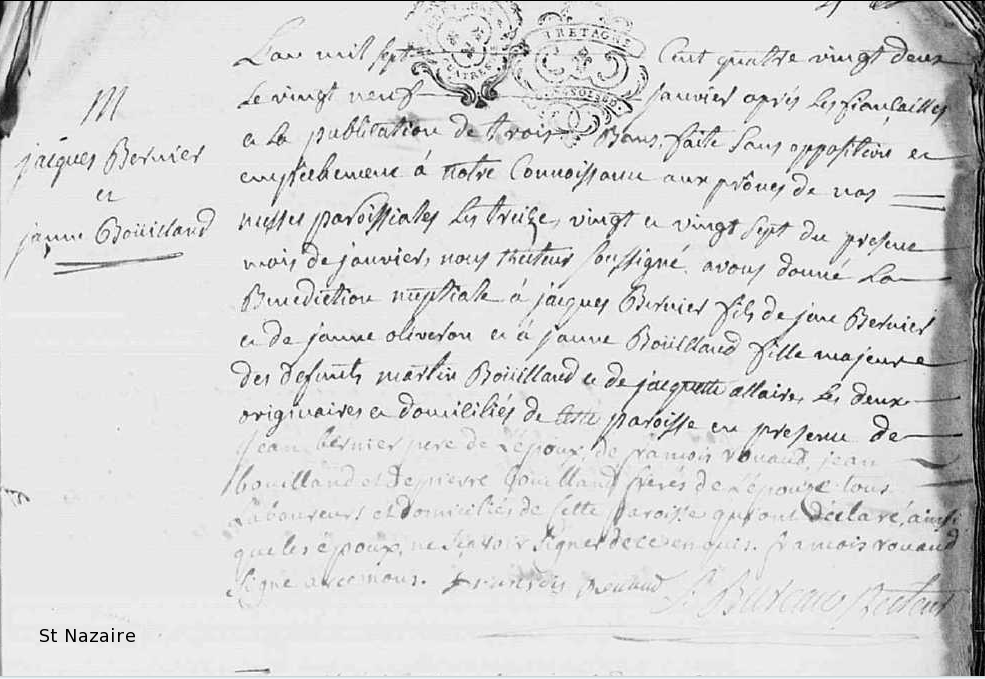 L'an mil sept Cent quatre vingt deux
Le vingt neuf janvier après Les fiançailles
et La publication de trois Bans, faite Sans opposition et
empêchement à notre Connoissance aux prônes de nos
messes paroissiales Les treize, vingt et vingt Sept du present
mois de janvier, nous Recteur Soussigné, avons donné La
Benediction nuptiale à jacques Bernier fils de jean Bernier
et de janne oliveron et à janne Boüilland fille majeure
des defunts martin Boüilland et de jacquette allaire, Les deux
originaires et domiciliés de cette paroisse en presence de
jean bernier pere de L'époux, de francois rouaud, jean
bouilland et de pierre bouilland freres de L'épouze tous
Laboureurs et domiciliés de cette paroisse qui ont déclaré, ainsi
que les époux, ne Scavoir Signer de ce enquis. francois rouaud
Signe avec nous. francois Rouaud Recteur
M
jacques Bernier
et
janne Boüilland
BRETAGNE
St Nazaire